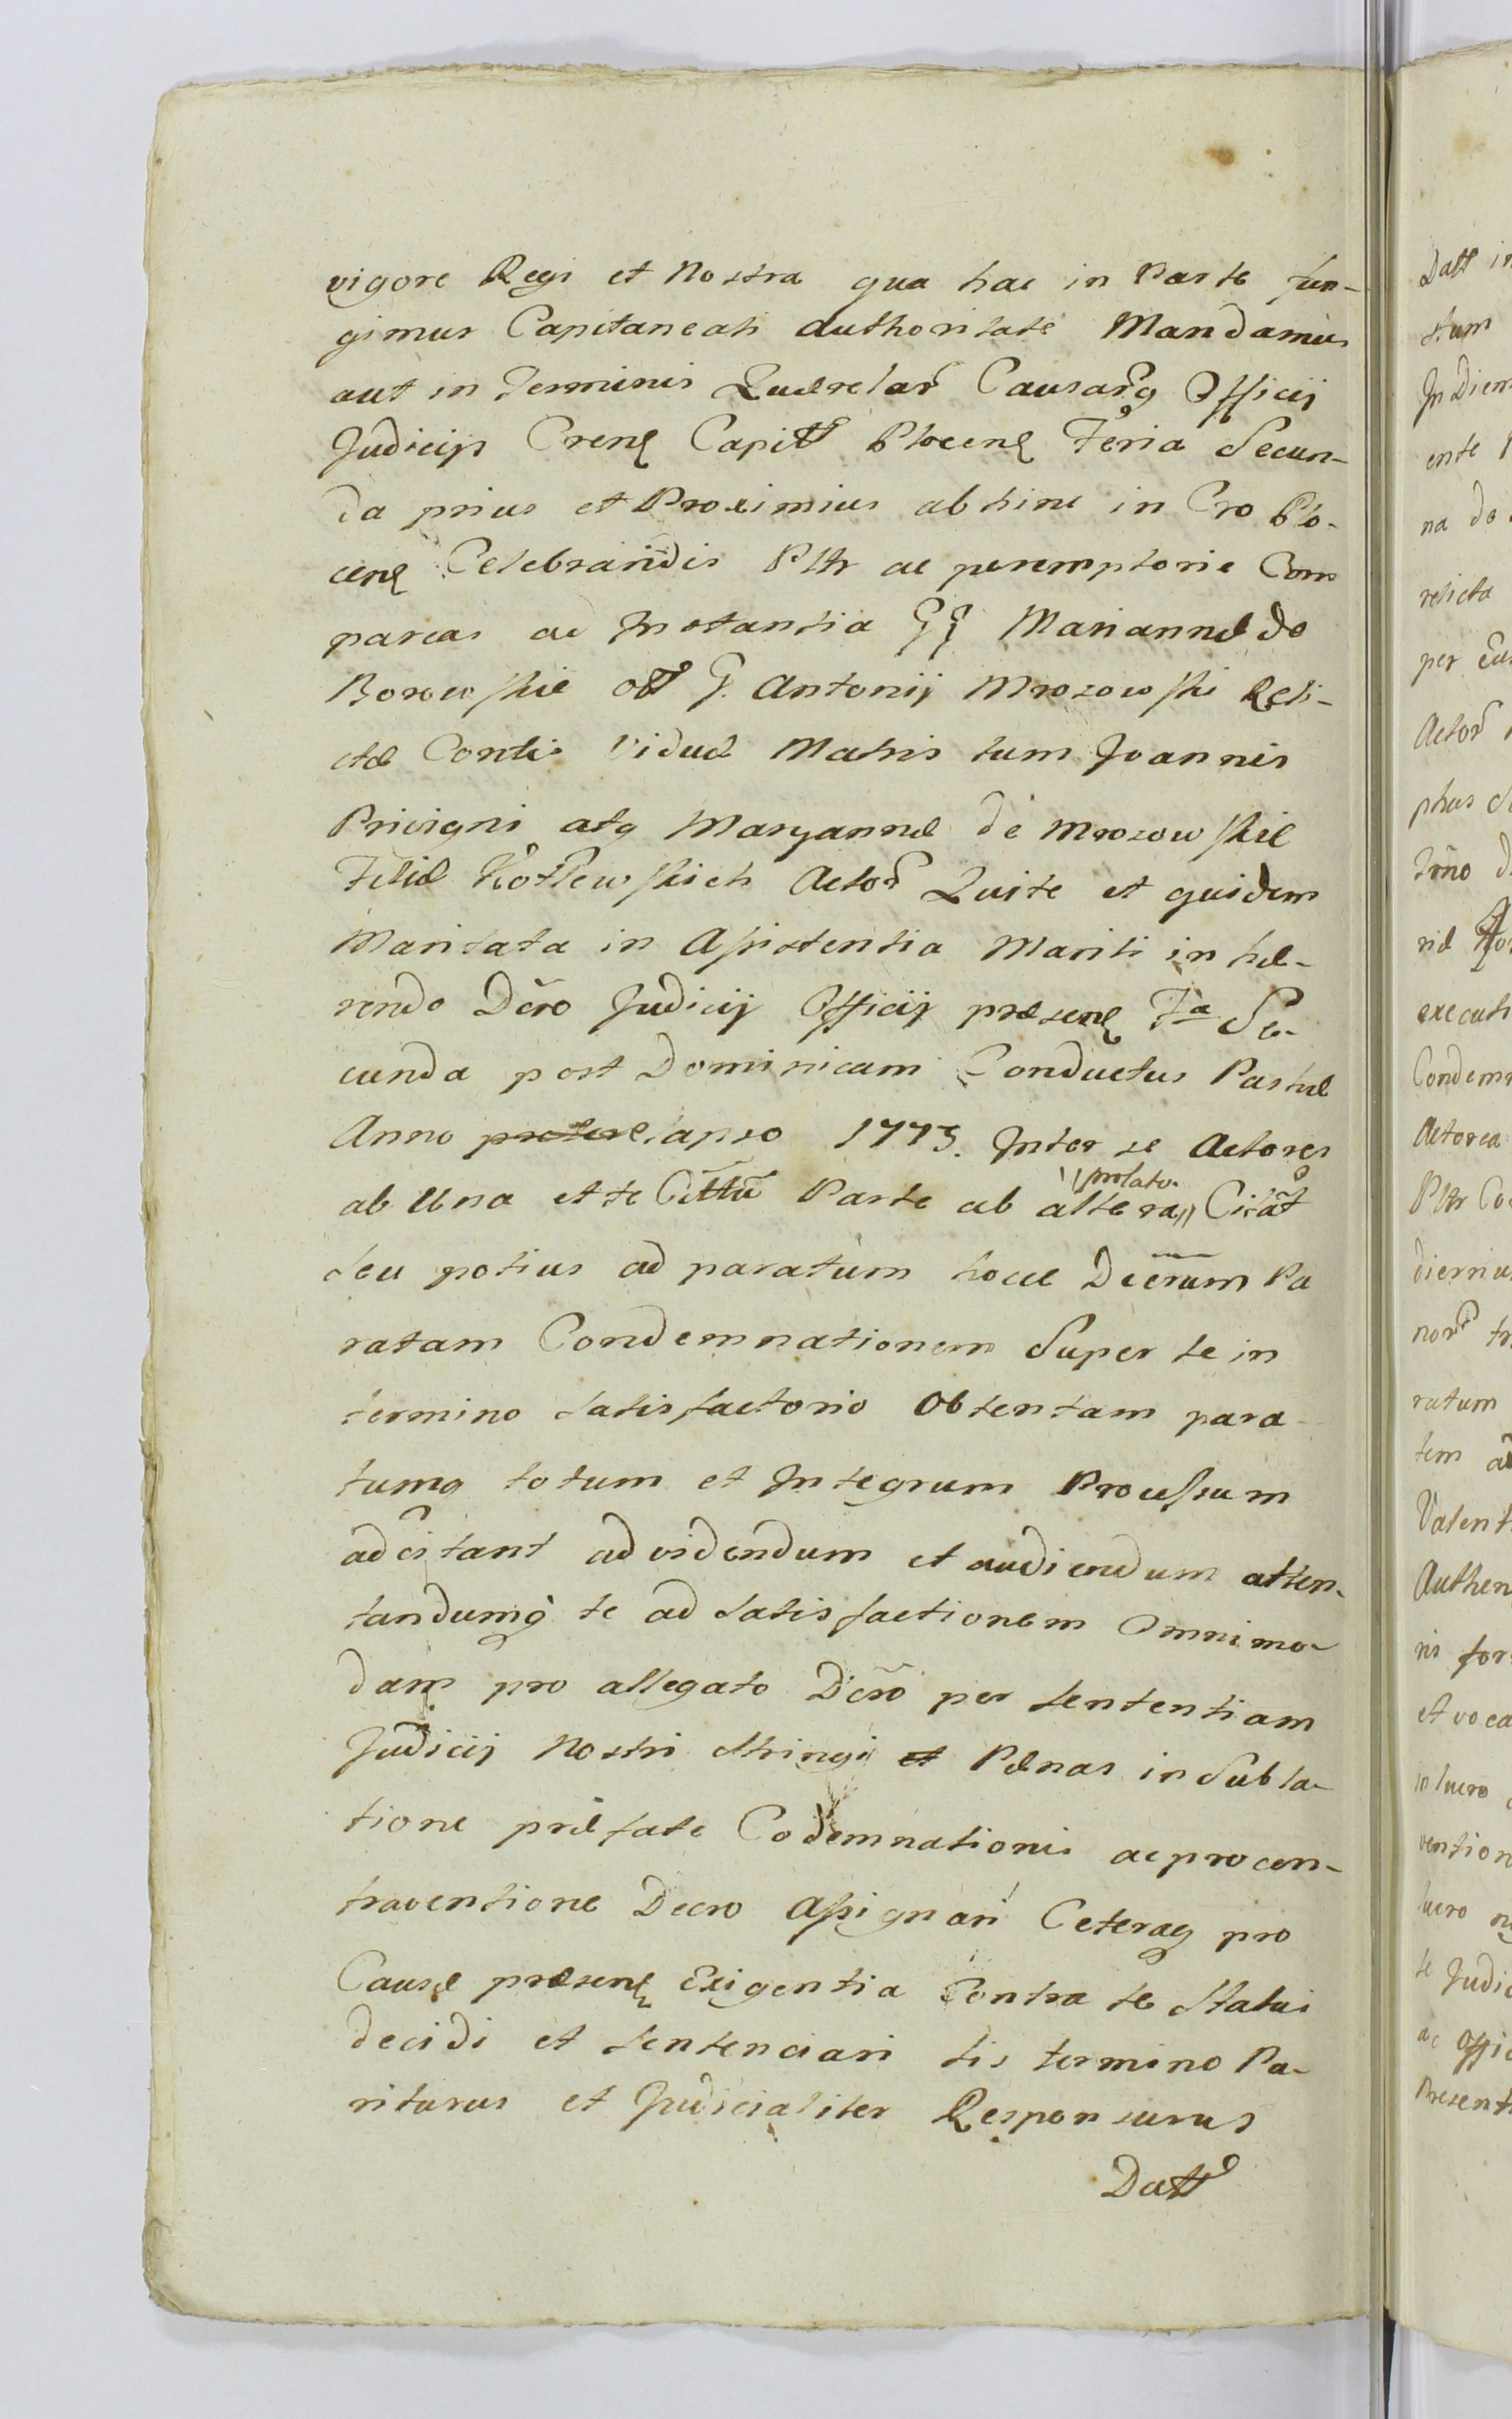 vigore Regi et Nostra qua hac in Parte fun-
gimur Capitaneati authoritate Mandamus
aut in Terminis Quærelar Causarq Officij
Judicijs Cren Capitt Plocen Feria Secun-
da prius et Proximius abhinc in Cro Plo-
cen Celebrandis Pltr ac peremptorie Com
pareas ad Instantia GG Mariannæ de
Borowskie ott G. Antonij Mrozowski Reli-
ctæ Contis Viduæ Matris tum Joannis
Privigni atq Maryannæ de Mrozowskie
Filiæ Kotlewskich Actor Quite et quidem
Maritata in Assistentia Mariti inhæ-
rendo Dcro Judicij Officij præsen Fa Se-
cunda post Dominicam Conductus Paschæ
Anno elapso 1775. Inter se Actores
ab Una et te Cittu Parte ab altera // Citat
// prolato
seu potius ad paratum hocce Decrum Pa
ratam Condemnationem Super te in
termino satisfactorio Obtentam para
tumq totum et Integrum Processum
adcitant ad videndum et audiendum atten-
tandumq te ad satisfactionem Omnimo-
dam pro allegato Dcro per sententiam
Judicij Nostri stringi et Pænas in Subla-
tione præfate Codemnationis ac pro con-
traventione Decro Assignari Ceteraq pro
Causæ præsen Exigentia Contra te Statui
decidi et sentenciari sis termino Pa-
riturus et Judicialiter Responsurus
Datt
Datt in
stum
In Diem
ente
na do
relicta
per
Actor
phus
Trno
riæ
executi
Condemn
Actorea
Pltr Co
diernu
nor
ratum
tem
Valent
Authen
ris for
et voca
lucro
vention
lucro
te Judic
ac Offic
Present